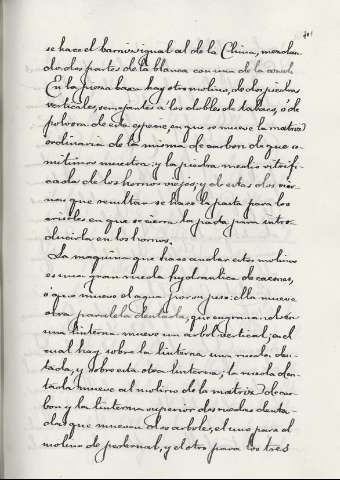 se hace el barniz igual al de la China, mezclan
do dos partes de la blanca con una de la
En la pieza baxa hay otro molino, de dos piedras
verticales, semejante a los dobles de tabaco, ó de
polvora de esta especie, en que se mueve la matriz
ordinaria de la misma de carbon de que re-
mitimos muestra; y la piedra medio vitrifi-
cada de los hornos viejos; y de estas dos
que resultan se hace la pasta para los
crisoles en que se cierra la pasta para intro-
ducirla en los hornos.
La maquina que hace andar estos molinos
es una gran rueda hydraulica de caxones,
ó que mueve el agua por su peso: ella mueve
otra paralela dentada, que engrana en
una linterna mueve un arbol vertical; en el
cual hay sobre la linterna una rueda den-
tada, y sobre esta otra linterna; la rueda den-
tada mueve al molino de la matriz de car-
bon y la linterna superior dos ruedas denta-
das que mueven dos arboles, el uno para el
molino de pedernal, y el otro para los tres